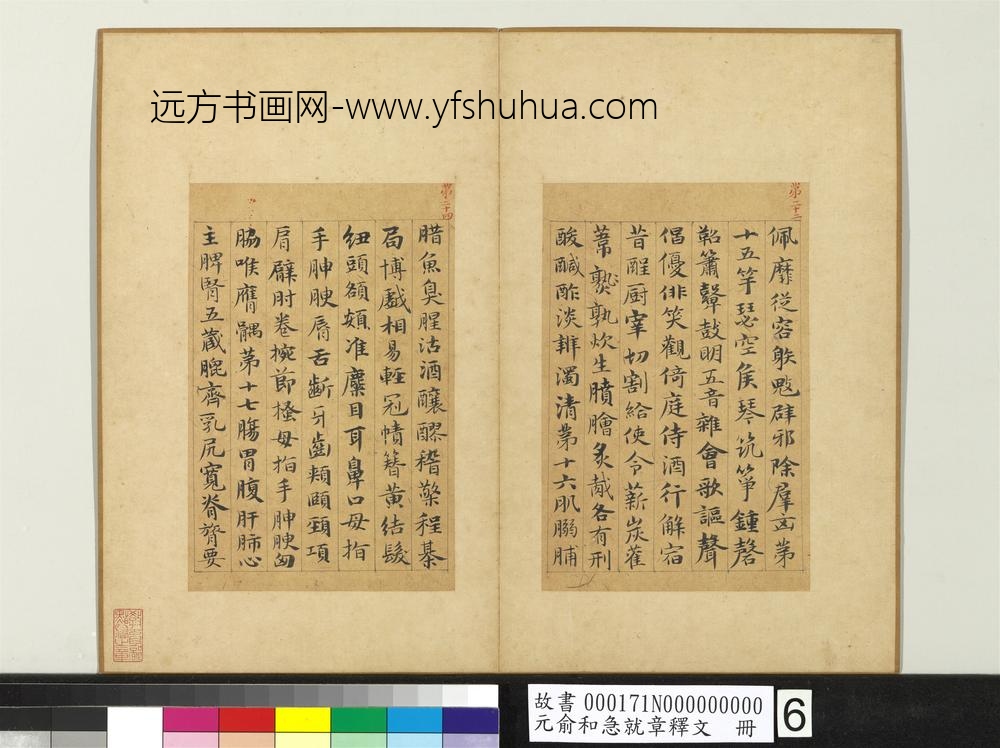 远方书画网-www.yfshuhua.com
第二十三
佩靡從容躲鬾辟邪除羣凶第
十五竽瑟空侯琴筑箏鍾磬
鞀簫鼙鼓明五音雜會歌謳聲
倡優俳笑觀倚庭侍酒行觧宿
昔酲厨宰切割給使令薪炭雚
葦孰炊生膹膾炙胾各有刑
酸醎酢淡辨濁清第十六肌䐧脯
第二十四
腊魚臭腥沽酒釀醪稽檠程棊
局博戲相易輕冠幘簪黄結髮
紐頭頟頞准麋目耳鼻口母指
手胂腴脣舌齗牙齒頰頤頸項
肩臂肘卷捥節搔母指手胂腴匈
脇喉膺髃第十七腸胃腹肝肺心
主脾腎五藏膍齊乳尻寬脊膂要
故書 000171N000000000
元俞和急就章釋文 冊
6